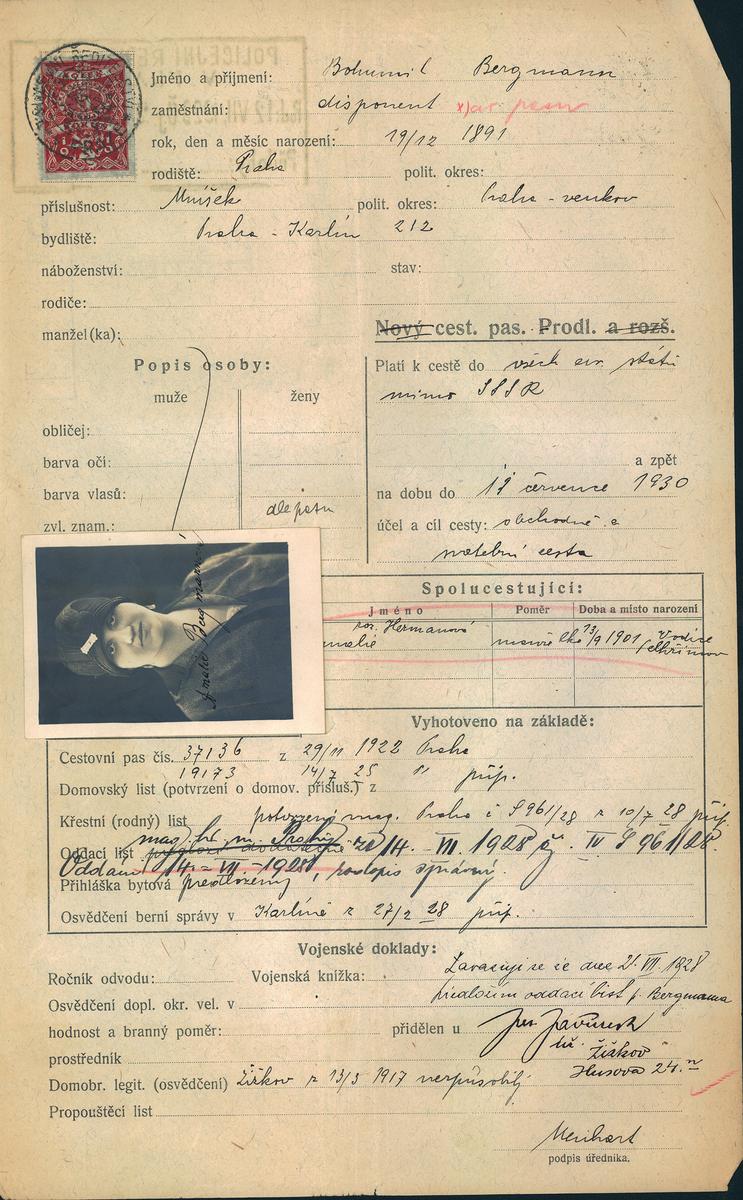 POLICEJNÍ ŘE
Jméno a příjmení: Bohumil Bergmann
zaměstnání: disponent x)
rok, den a měsíc narození: 19/12 1891
rodiště: Praha polit. okres:
příslušnost: Mníšek polit. okres: Praha - venkov
bydliště: Praha - Karlín 212
náboženství: stav:
rodiče:
manžel (ka):
Nový cest. pas. Prodl. a rozš.
Popis osoby:
muže ženy
obličej:
barva očí:
barva vlasů:
zvl. znam.: dle pasu
Platí k cestě do všech ev. států
mimo SSSR
a zpět
na dobu do července 1930
účel a cíl cesty: obchodně a
svatební cesta
Amalie Bergmannová
Spolucestující:
Jméno Poměr Doba a místo narození
roz. Hermanová
malie manželka 13/9 1901 Vodice
Vyhotoveno na základě:
Cestovní pas čís. 37136 z 29/11 1922 Praha
19173 14/7 25 " přip.
Domovský list (potvrzení o domov. přísluš.) z
Křestní (rodný) list potvrzení mag. Praha č S 961/28 z 10/7 28 přip.
Oddací list mag. hl. m. Prahy ze 14. VII. 1928 čj. IV S 961/28.
Oddáni 14. - VII - 1928, rodopis správný.
Přihláška bytová předložena
Osvědčení berní správy v Karlíně z 27/2 28 přip.
Vojenské doklady:
Ročník odvodu: Vojenská knížka:
Zavazuji se že dne 21. VII. 1928
Osvědčení dopl. okr. vel. v
předložím oddací list p. Bergmanna
hodnost a branný poměr: přidělen u
Žižkov
prostředník
Husova 24.
Domobr. legit. (osvědčení) Žižkov z 13/3 1917 neschopný
Propouštěcí list
Menhart
podpis úředníka.